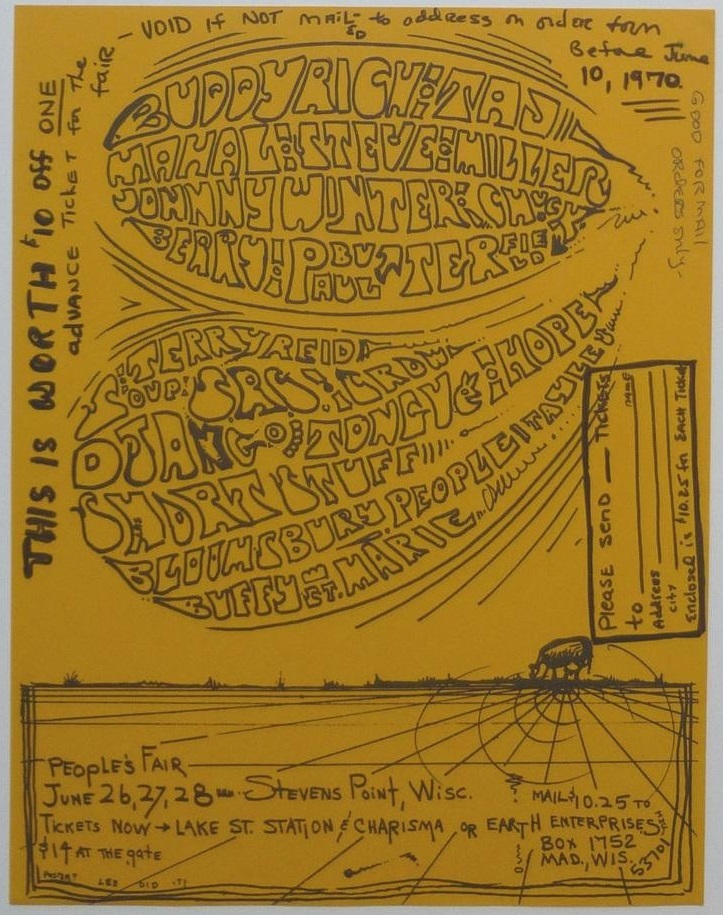 VOID if NOT MAIL-ED to address on order form
Before June 10, 1970.
GOOD FOR MAIL ORDERS only-
THIS IS WORTH $10 off ONE
advance Ticket for the fair -
BUDDY RICH TAJ
MAHAL STEVE MILLER
JOHNNY WINTER CHUCK
BERRY PAUL BUTTERFIELD
TERRY REID
SOUP SRC CROW
DJANGO TONGUE HOPE
SHORT STUFF
BLOOMSBURY PEOPLE TAYLES
BUFFY ST. MARIE
Please send — Tickets
to NAME
Address
CITY
Enclosed is $10.25 for EACH Ticket
PEOPLE'S FAIR
JUNE 26, 27, 28 STEVENS POINT, WISC.
TICKETS NOW → LAKE ST. STATION & CHARISMA OR EARTH ENTERPRISES
$14 AT THE gate
MAIL $10.25 TO
BOX 1752
MAD., WIS. 53701
LEE DID IT!